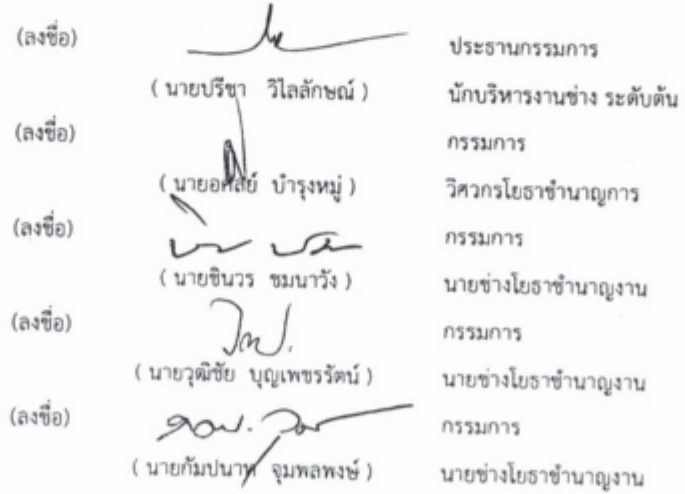 (ลงชื่อ) ประธานกรรมการ
( นายปรีชา วิไลลักษณ์ ) นักบริหารงานช่าง ระดับต้น
(ลงชื่อ) กรรมการ
( นาย บำรุงหมู่ ) วิศวกรโยธาชำนาญการ
(ลงชื่อ) กรรมการ
( นายชินวร ชมนาวัง ) นายช่างโยธาชำนาญงาน
(ลงชื่อ) กรรมการ
( นายวุฒิชัย บุญเพชรรัตน์ ) นายช่างโยธาชำนาญงาน
(ลงชื่อ) กรรมการ
( นายกัมปนาท จุมพลพงษ์ ) นายช่างโยธาชำนาญงาน